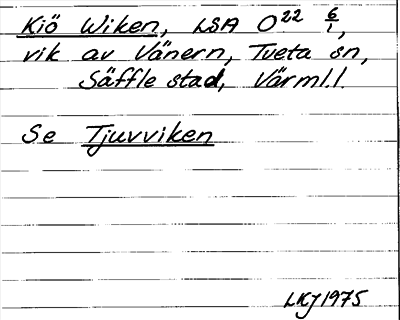 Kiö Wiken, LSA O²² 6/1,
vik av Vänern, Tveta sn,
Säffle stad, Värml.l.
Se Tjuvviken
LKJ 1975